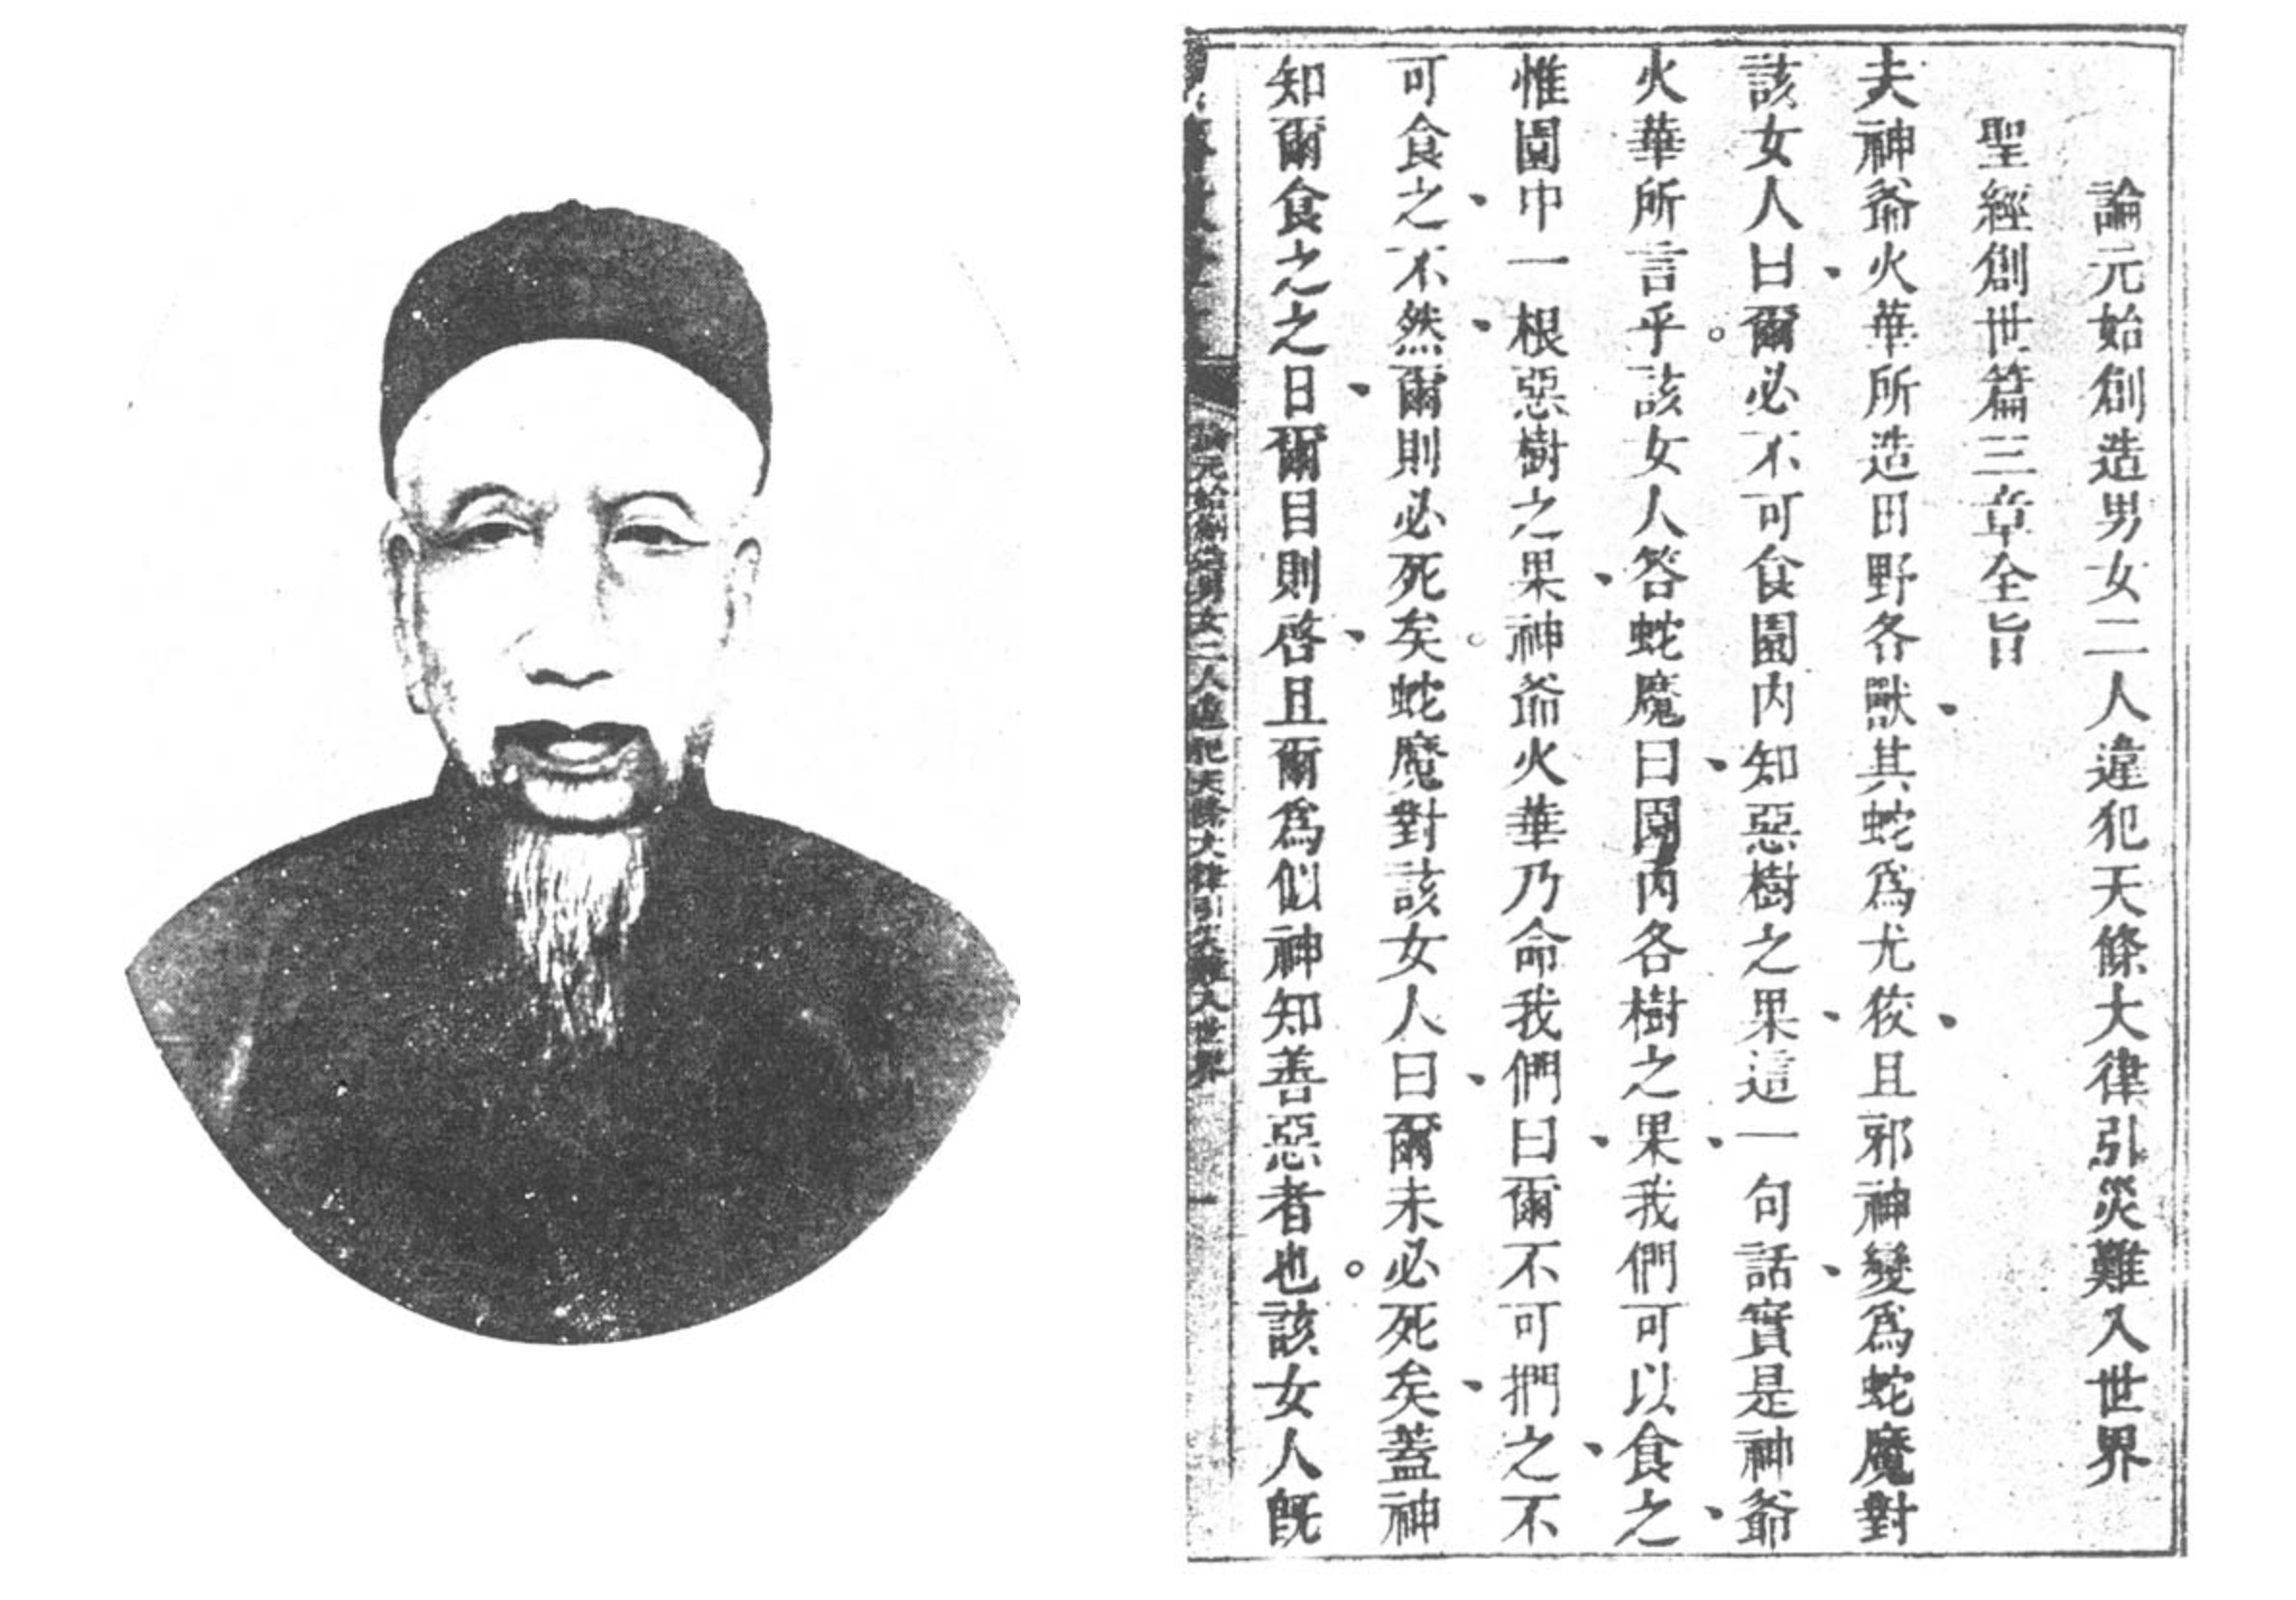 論元始創造男女二人違犯天條大律引災難入世界
聖經創世篇三章全旨
夫神爺火華所造田野各獸、其蛇爲尤狡、且邪神變爲蛇魔對
該女人曰、爾必不可食園內知惡樹之果、這一句話、實是神爺
火華所言乎。該女人答蛇魔曰、園內各樹之果、我們可以食之、
惟園中一根惡樹之果、神爺火華乃命我們曰、爾不可捫之、不
可食之、不然、爾則必死矣。蛇魔對該女人曰、爾未必死矣、蓋神
知爾食之之日、爾目則啓、且爾爲似神知善惡者也。該女人既
論元始創造男女二人違犯天條大律引災難入世界
一